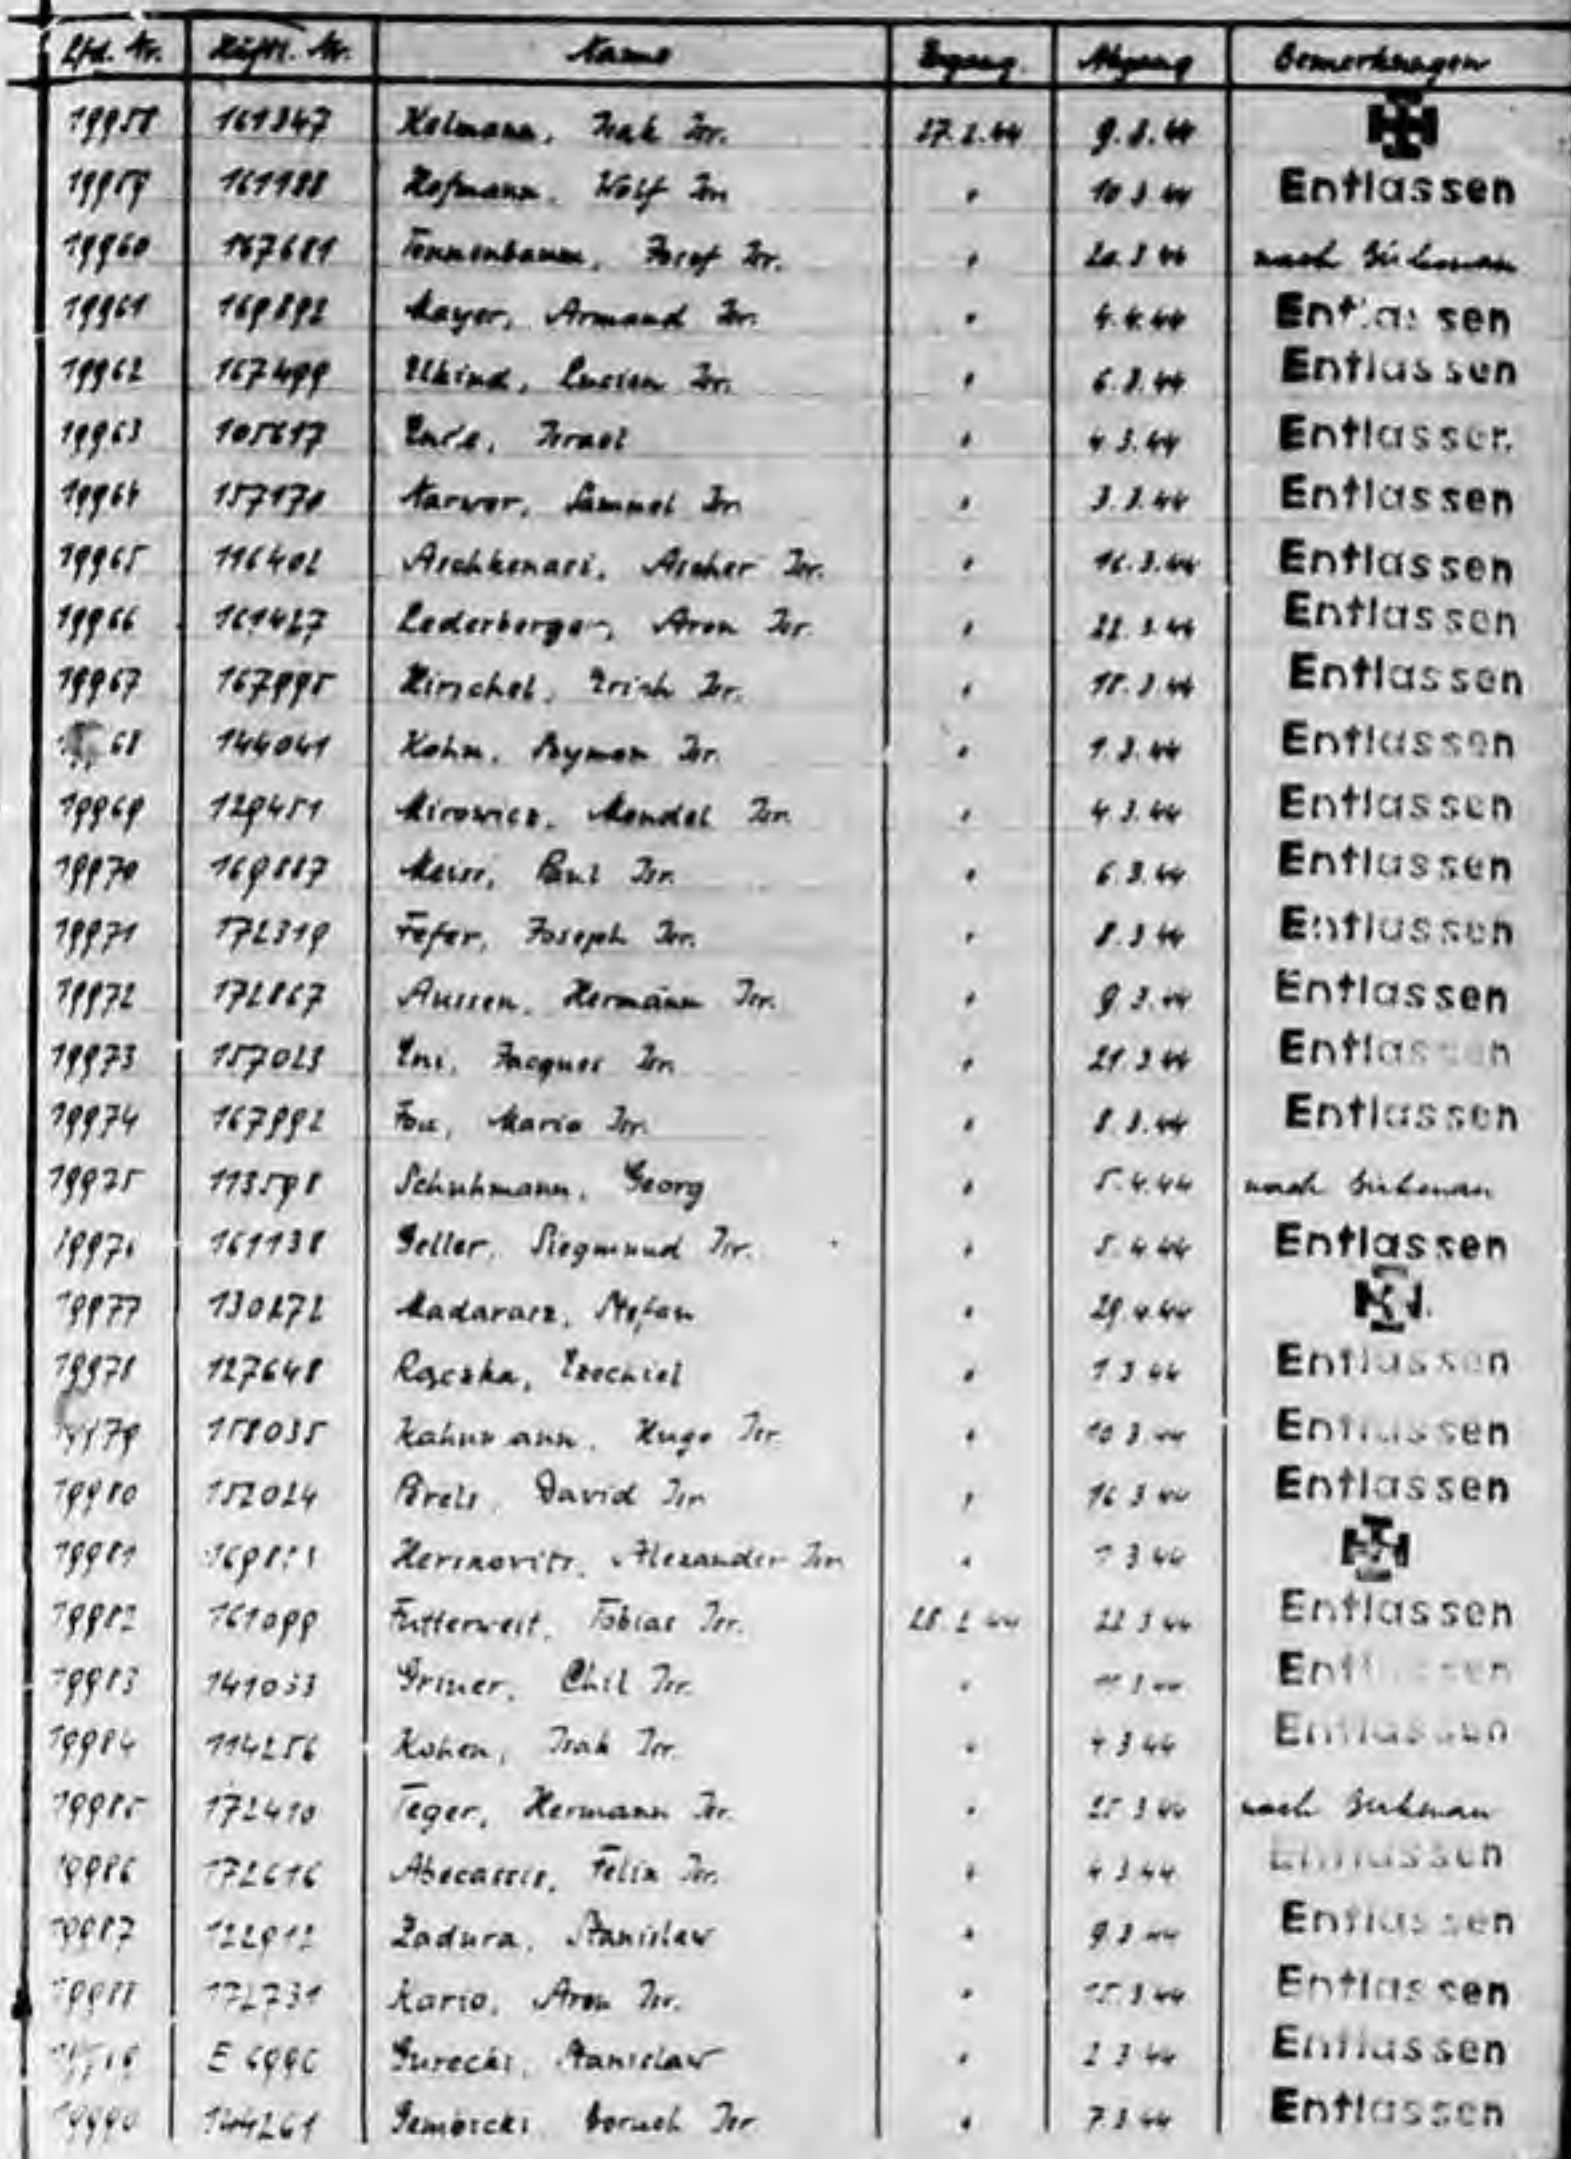 Lfd. Nr. Häftl. Nr. Name Zugang Abgang Bemerkungen
19958 161347 Helmann, Isak Isr. 27.2.44 9.3.44
19959 161188 Hofmann, Wolf Isr. " 10.3.44 Entlassen
19960 167681 Tennenbaum, Josef Isr. " 20.3.44 nach Birkenau
19961 169892 Mayer, Armand Isr. " 4.4.44 Entlassen
19962 167499 Elkind, Lucien Isr. " 6.3.44 Entlassen
19963 105617 Israel " 4.3.44 Entlassen
19964 157170 Narwer, Samuel Isr. " 3.3.44 Entlassen
19965 116402 Aschkenasi, Ascher Isr. " 16.3.44 Entlassen
19966 161427 Lederberger, Aron Isr. " 22.3.44 Entlassen
19967 167995 Hirschel, Erich Isr. " 18.3.44 Entlassen
68 144041 Kohn, Isr. " 1.3.44 Entlassen
19969 129451 Mirowicz, Mendel Isr. " 4.3.44 Entlassen
19970 169887 Paul Isr. " 6.3.44 Entlassen
19971 172319 Fefer, Joseph Isr. " 8.3.44 Entlassen
19972 172867 Aussen, Hermann Isr. " 9.3.44 Entlassen
19973 157023 Eni, Jacques Isr. " 21.3.44 Entlassen
19974 167992 Mario Isr. " 8.3.44 Entlassen
19975 113598 Schuhmann, Georg " 5.4.44 nach Birkenau
19976 161138 Geller, Siegmund Isr. " 5.4.44 Entlassen
19977 130272 Madarasz, Stefan " 29.4.44
19978 127648 Rączka, Ezechiel " 1.3.44 Entlassen
19979 158035 Kahnmann, Hugo Isr. " 10.3.44 Entlassen
19980 152024 Perels, David Isr. " 16.3.44 Entlassen
19981 Herskovits, Alexander Isr. " 1.3.44
19982 161099 Futterweit, Tobias Isr. 28.2.44 22.3.44 Entlassen
19983 141033 Griner, Chil Isr. " Entlassen
19984 114256 Kohen, Isak Isr. " 4.3.44 Entlassen
19985 172410 Teger, Hermann Isr. " 25.3.44 nach Birkenau
19986 172616 Abecassis, Felix Isr. " 4.3.44 Entlassen
19987 122912 Zadura, Stanislaw " 9.3.44 Entlassen
19988 172731 Kario, Aron Isr. " 15.3.44 Entlassen
E 6996 Gurecki, Stanislaw " 2.3.44 Entlassen
19990 144261 Boruch Isr. " 7.3.44 Entlassen